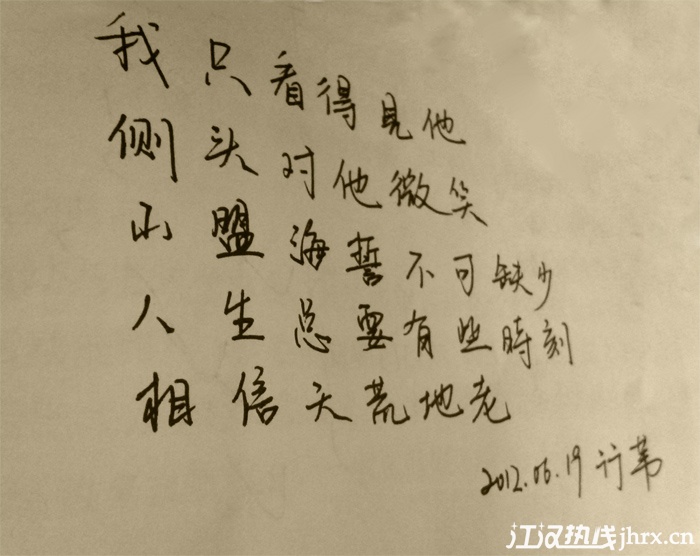 我只看得見他
侧头对他微笑
山盟海誓不可缺少
人生总要有些時刻
相信天荒地老
2012.06.19 行苇
江汉热线jhrx.cn